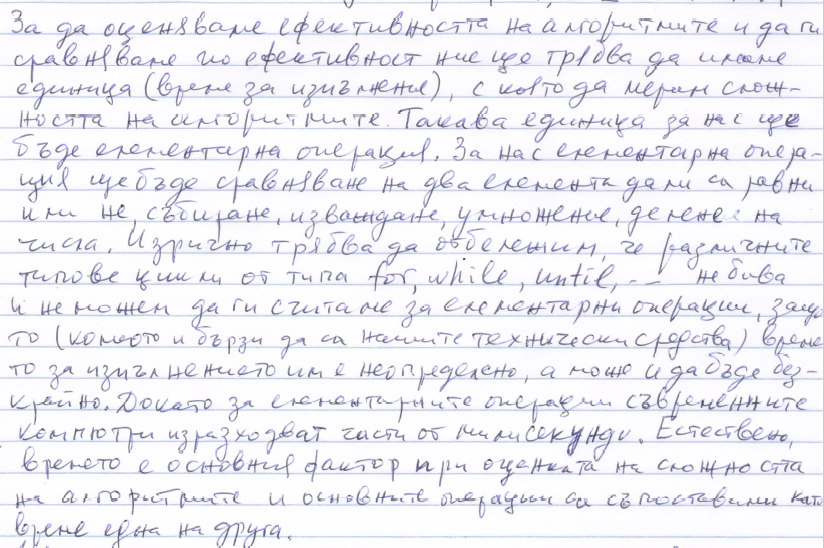 За да оценяваме ефективността на алгоритмите и да ги
сравняваме по ефективност ние ще трябва да имаме
единица (време за изпълнение), с която да мерим слож-
ността на алгоритмите. Такава единица за нас ще
бъде елементарна операция. За нас елементарна опера-
ция ще бъде сравняване на два елемента дали са равни
или не, събиране, изваждане, умножение, делене на
числа. Изрично трябва да отбележим, че различните
типове цикли от типа for, while, until, -- не бива
и не можем да ги считаме за елементарни операции, защо
то (колкото и бързи да са нашите технически средства) време
то за изпълнението им е неопределено, а може и да бъде без-
крайно. Докато за елементарните операции съвременните
компютри изразходват части от милисекунди. Естествено,
времето е основния фактор при оценката на сложността
на алгоритмите и основните операции са съпоставими като
време една на друга.